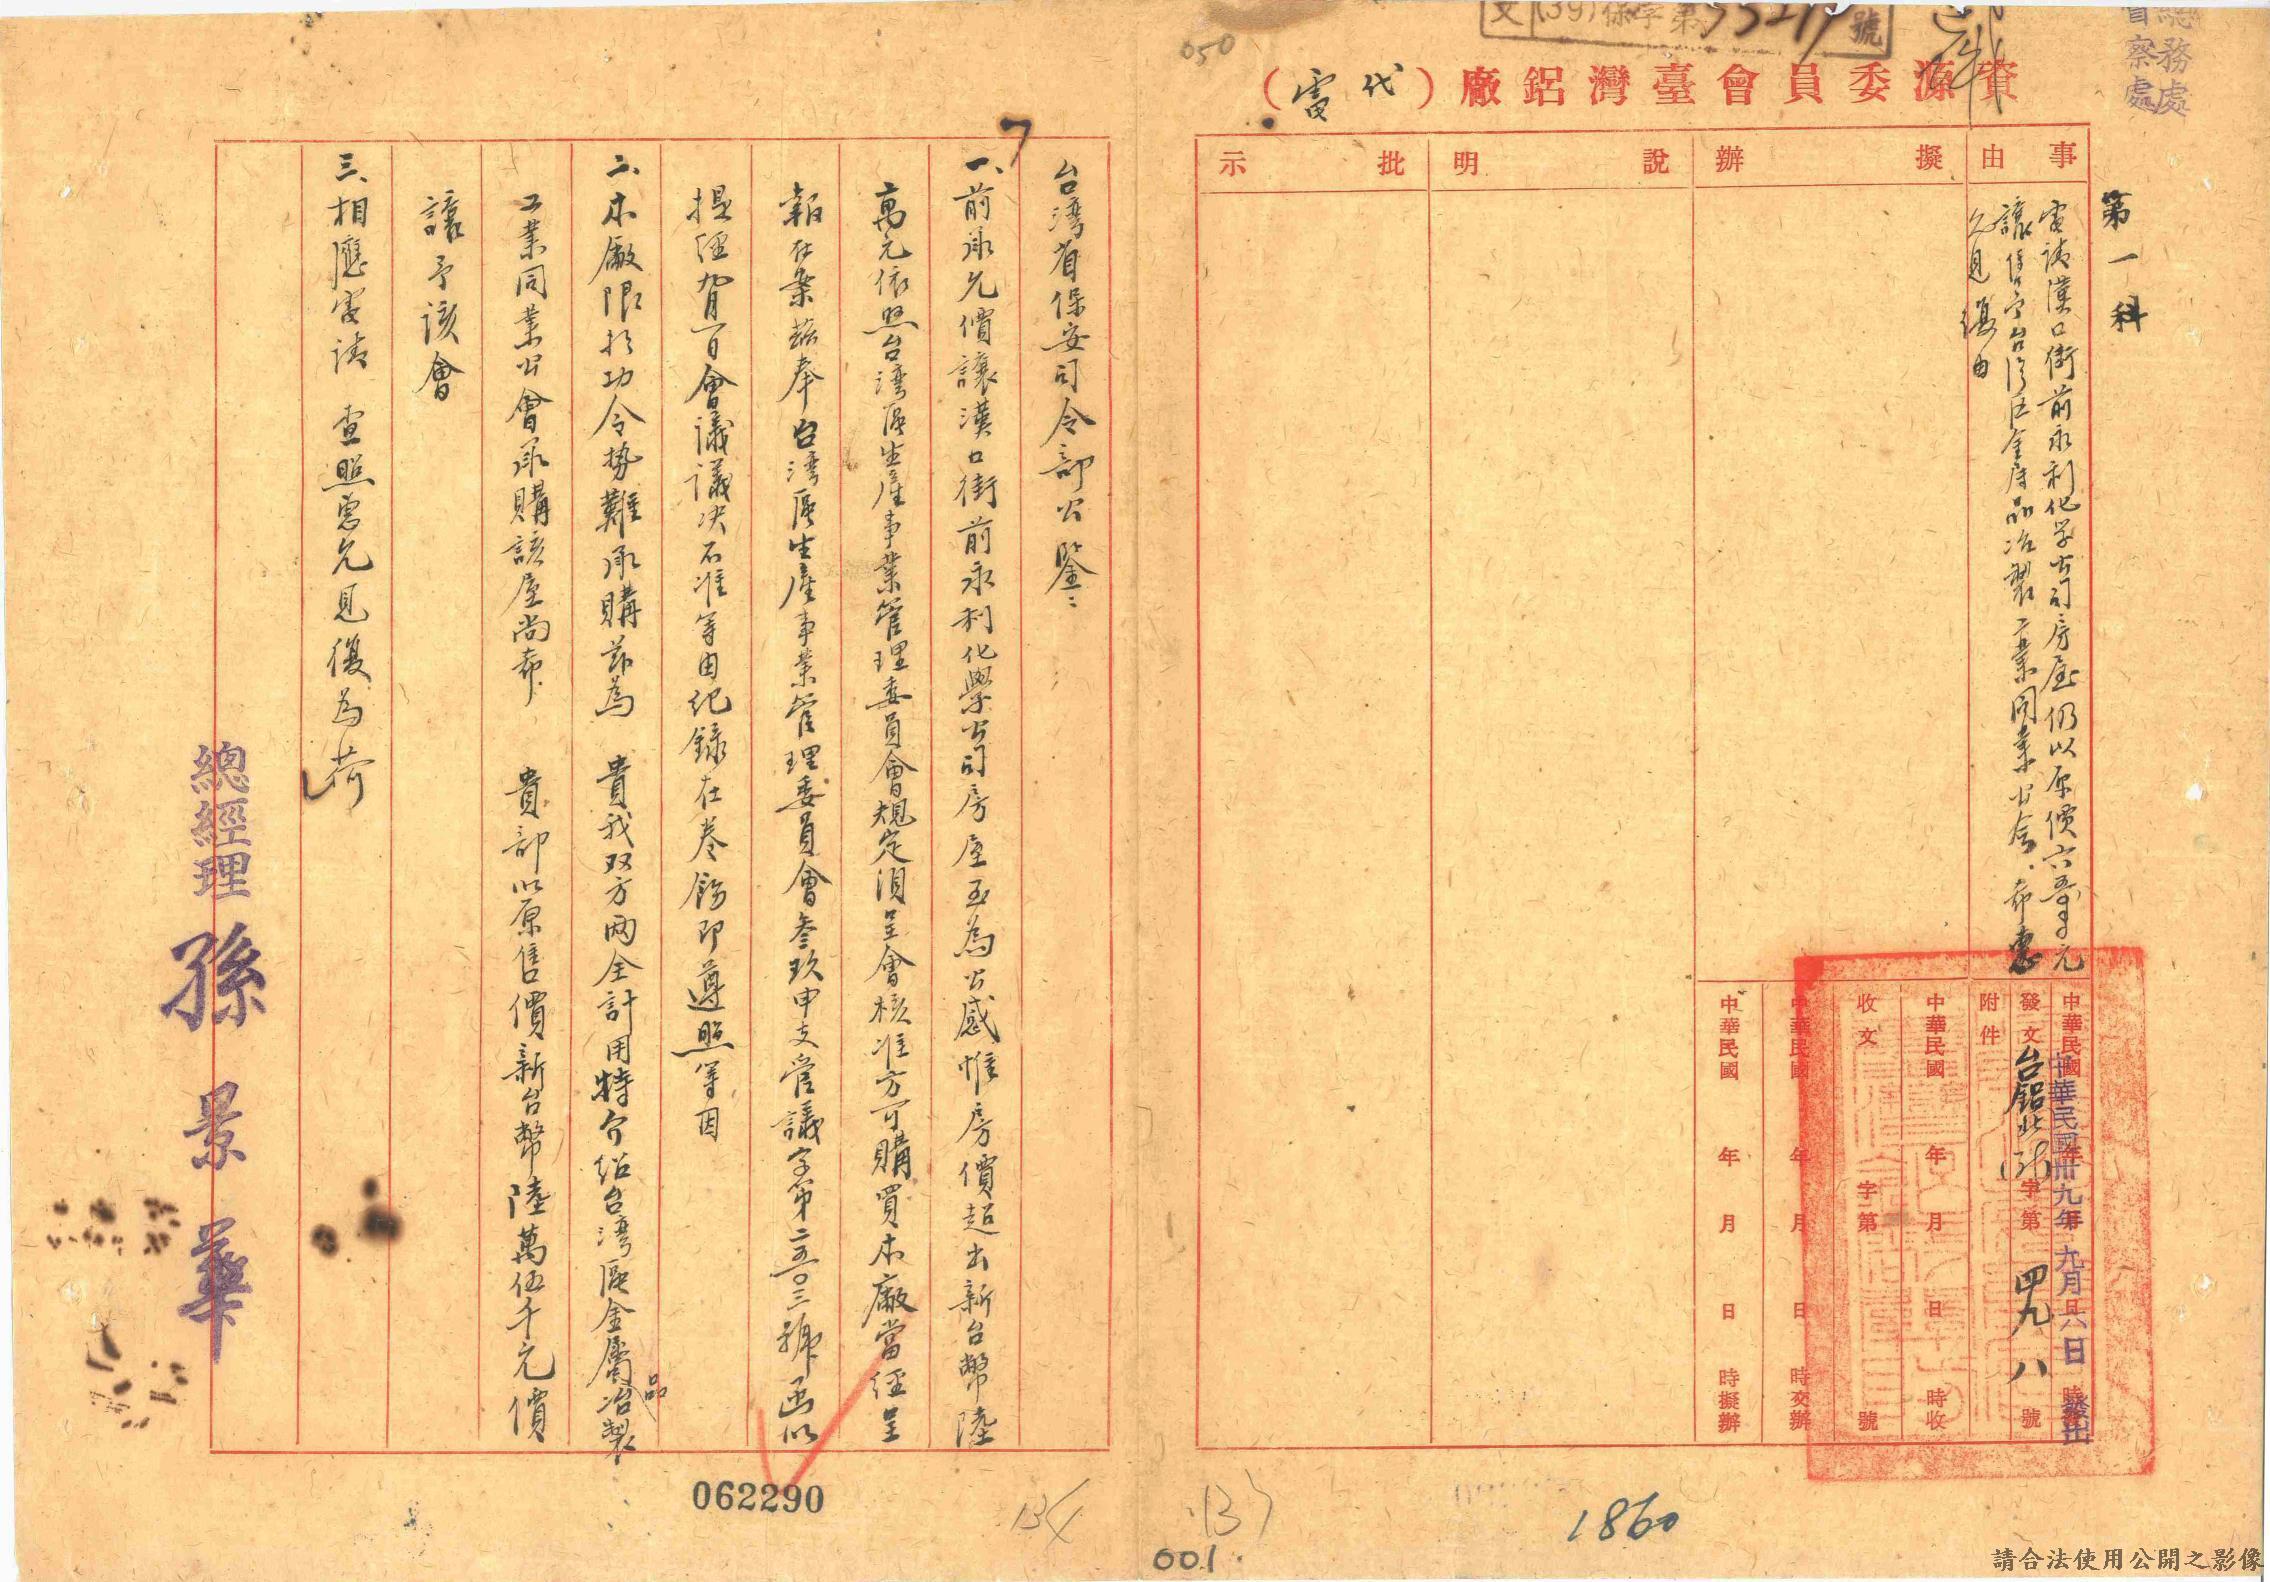 總務處
督察處
文(39)保字第 號
050
資源委員會臺灣鋁廠(代電)
第一科
事由
擬辦
說明
批示
電請漢口街前永利化学公司房屋仍以原價六萬五千元
讓售
工業同業公會希惠
允見復由
中華民國 年 月 日 時
中華民國卅九年九月六日發出
發文台鋁北 字第四九八號
附件
中華民國 年 月 日 時收
收文 字第 號
中華民國 年 月 日 時交辦
中華民國 年 月 日 時擬辦
台湾省保安司令部公鑒:
一、前承允價讓漢口街前永利化學公司房屋至為公感惟房價超出新台幣陸
萬元依照台湾區生産事業管理委員會規定須呈會核准方可購買本廠當經呈
報在案茲奉台湾區生産事業管理委員會叁玖申支管議字第二五〇三號函以
提經九月一日會議議決不准等由紀錄在卷飭即遵照等因
二、本廠限於功令勢難承購茲為 貴我双方两全計用特介绍台湾區金屬品冶製
工業同業公會承購該屋尚希 貴部以原售價新台幣陸萬伍千元價
讓予該會
三、相應電請 查照惠允見復為荷
總經理 孫景華
062290
134
131
001
1860
請合法使用公開之影像